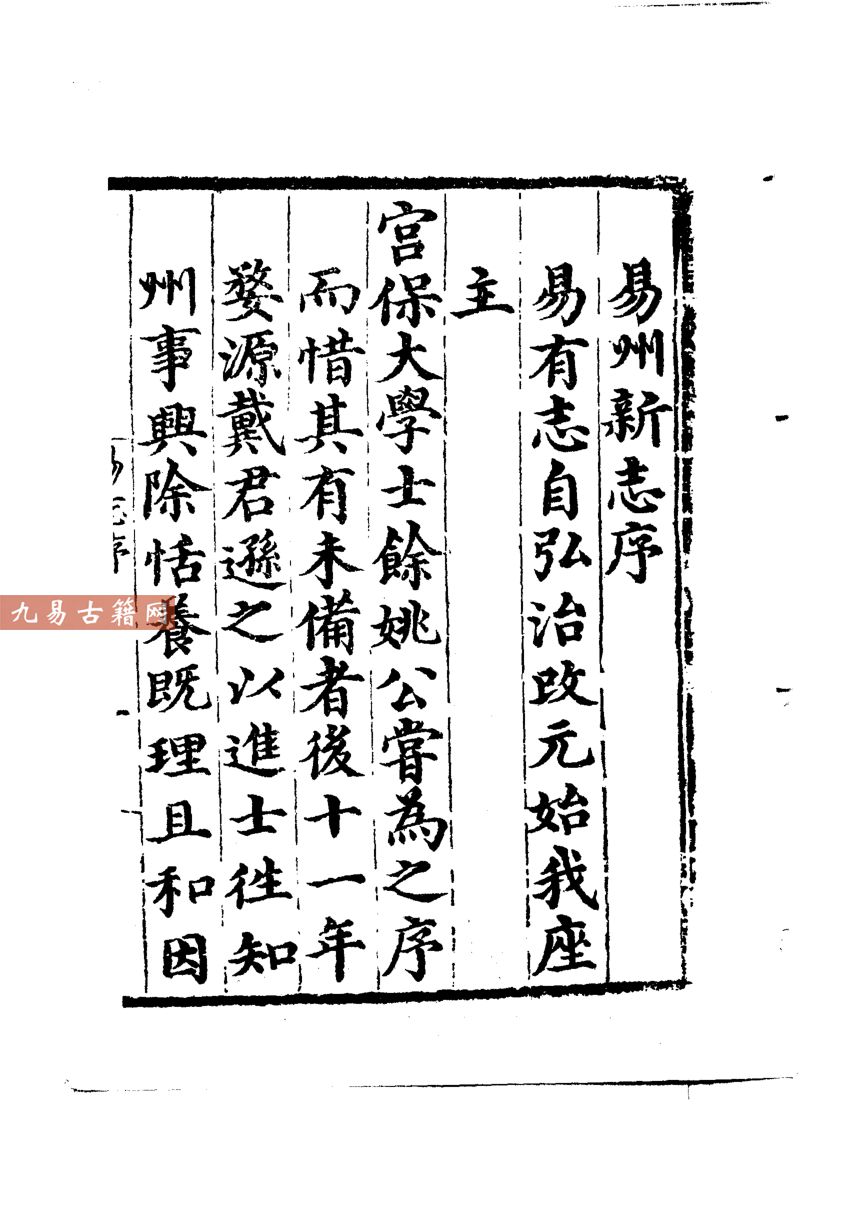 易州新志序
易有志自弘治改元始我座
主
宫保大學士餘姚公嘗為之序
而惜其有未備者後十一年
婺源戴君遜之以進士徃知
州事興除恬養既理且和因
易志序
九易古籍网